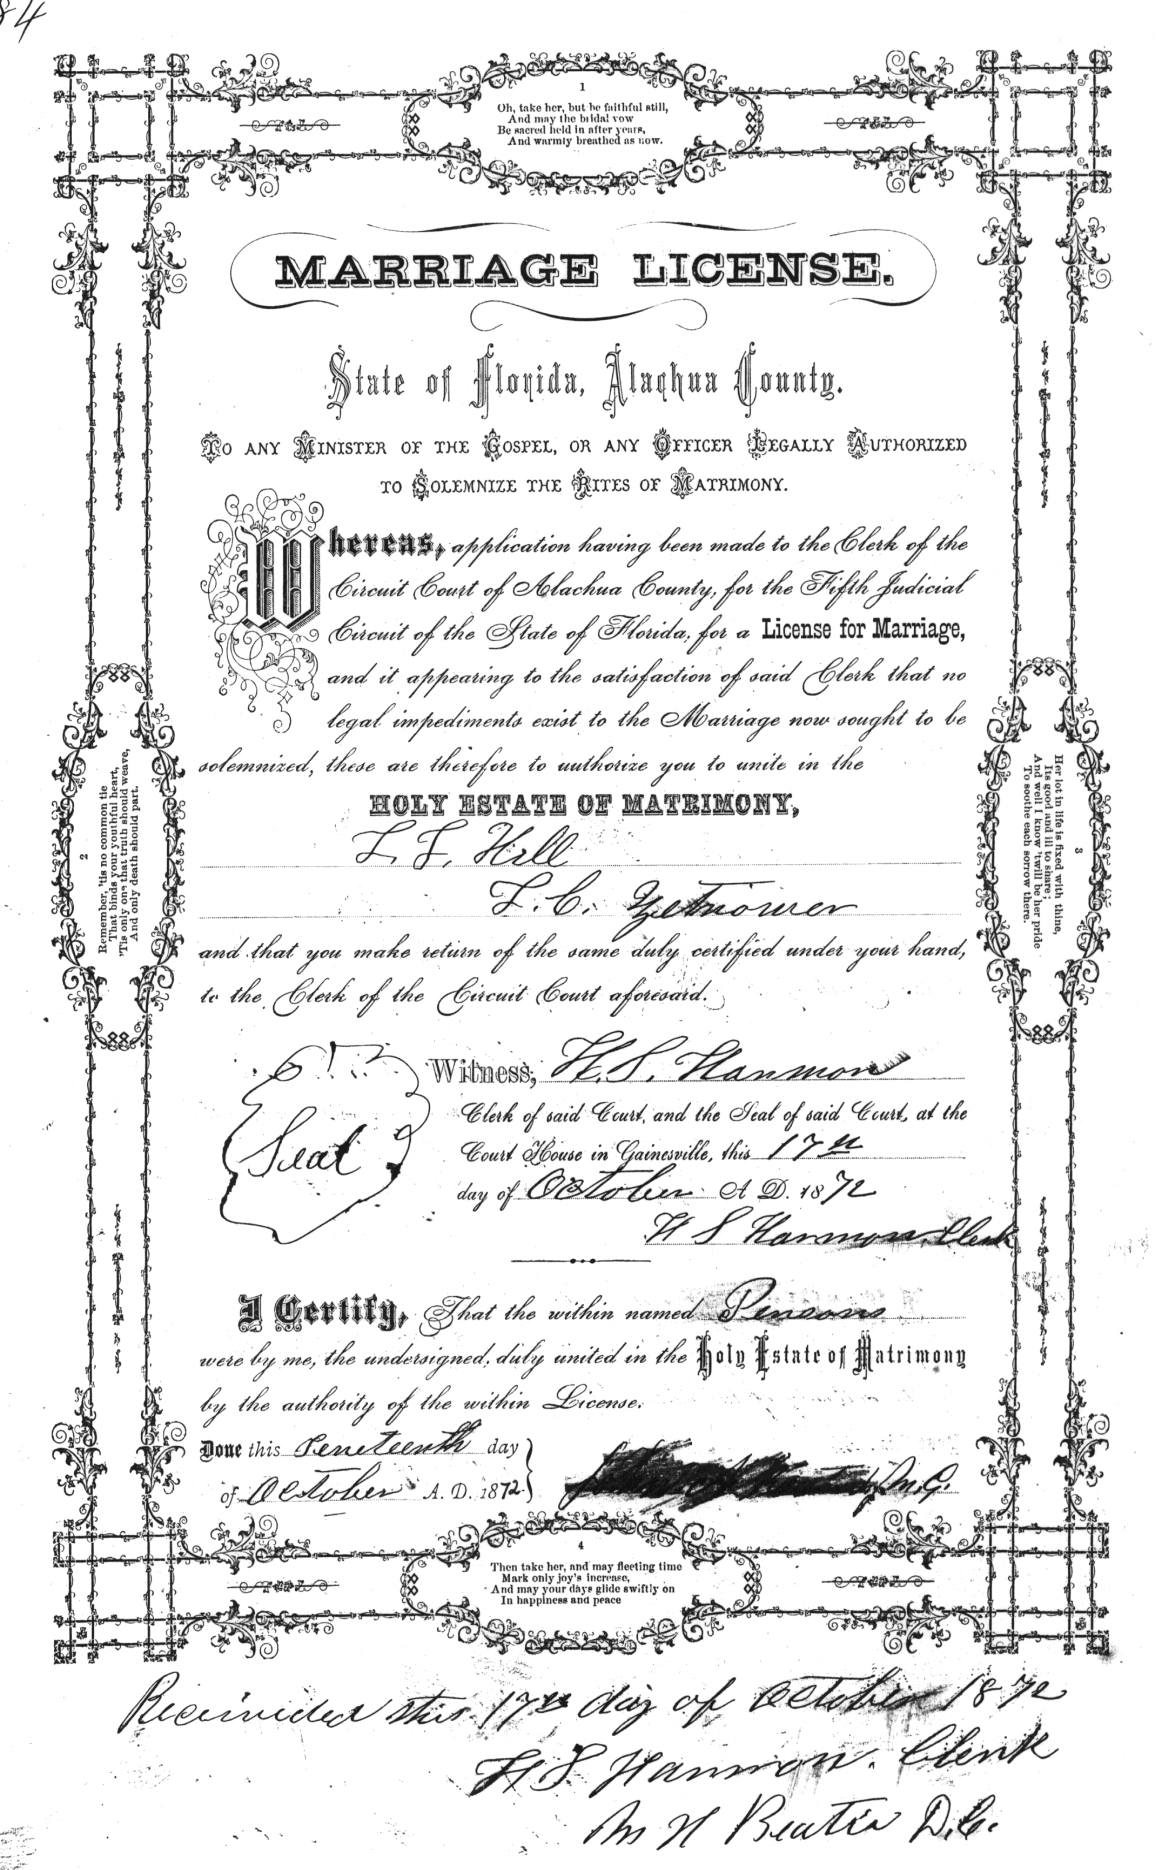 84
1
Oh, take her, but be faithful still,
And may the bridal vow
Be sacred held in after years,
And warmly breathed as now.
MARRIAGE LICENSE.
State of Florida, Alachua County.
To any Minister of the Gospel, or any Officer Legally Authorized
to Solemnize the Rites of Matrimony.
Whereas, application having been made to the Clerk of the
Circuit Court of Alachua County, for the Fifth Judicial
Circuit of the State of Florida, for a License for Marriage,
and it appearing to the satisfaction of said Clerk that no
legal impediments exist to the Marriage now sought to be
solemnized, these are therefore to authorize you to unite in the
HOLY ESTATE OF MATRIMONY,
L. L. Hill
L. C. Zetrower
and that you make return of the same duly certified under your hand,
to the Clerk of the Circuit Court aforesaid.
Seal
Witness, H. S. Harmon
Clerk of said Court, and the Seal of said Court, at the
Court House in Gainesville, this 17th
day of October A. D. 1872
H S Harmon, Clerk
I Certify, That the within named Persons
were by me, the undersigned, duly united in the Holy Estate of Matrimony
by the authority of the within License.
Done this day
of October A. D. 1872
M. G.
2
Remember, 'tis no common tie
That binds your youthful heart,
'Tis only one that truth should weave,
And only death should part.
3
Her lot in life is fixed with thine,
Its good and ill to share;
And well I know 'twill be her pride
To soothe each sorrow there.
4
Then take her, and may fleeting time
Mark only joy's increase,
And may your days glide swiftly on
In happiness and peace
this 17th day of October 1872
H. S. Harmon. Clerk
D. C.